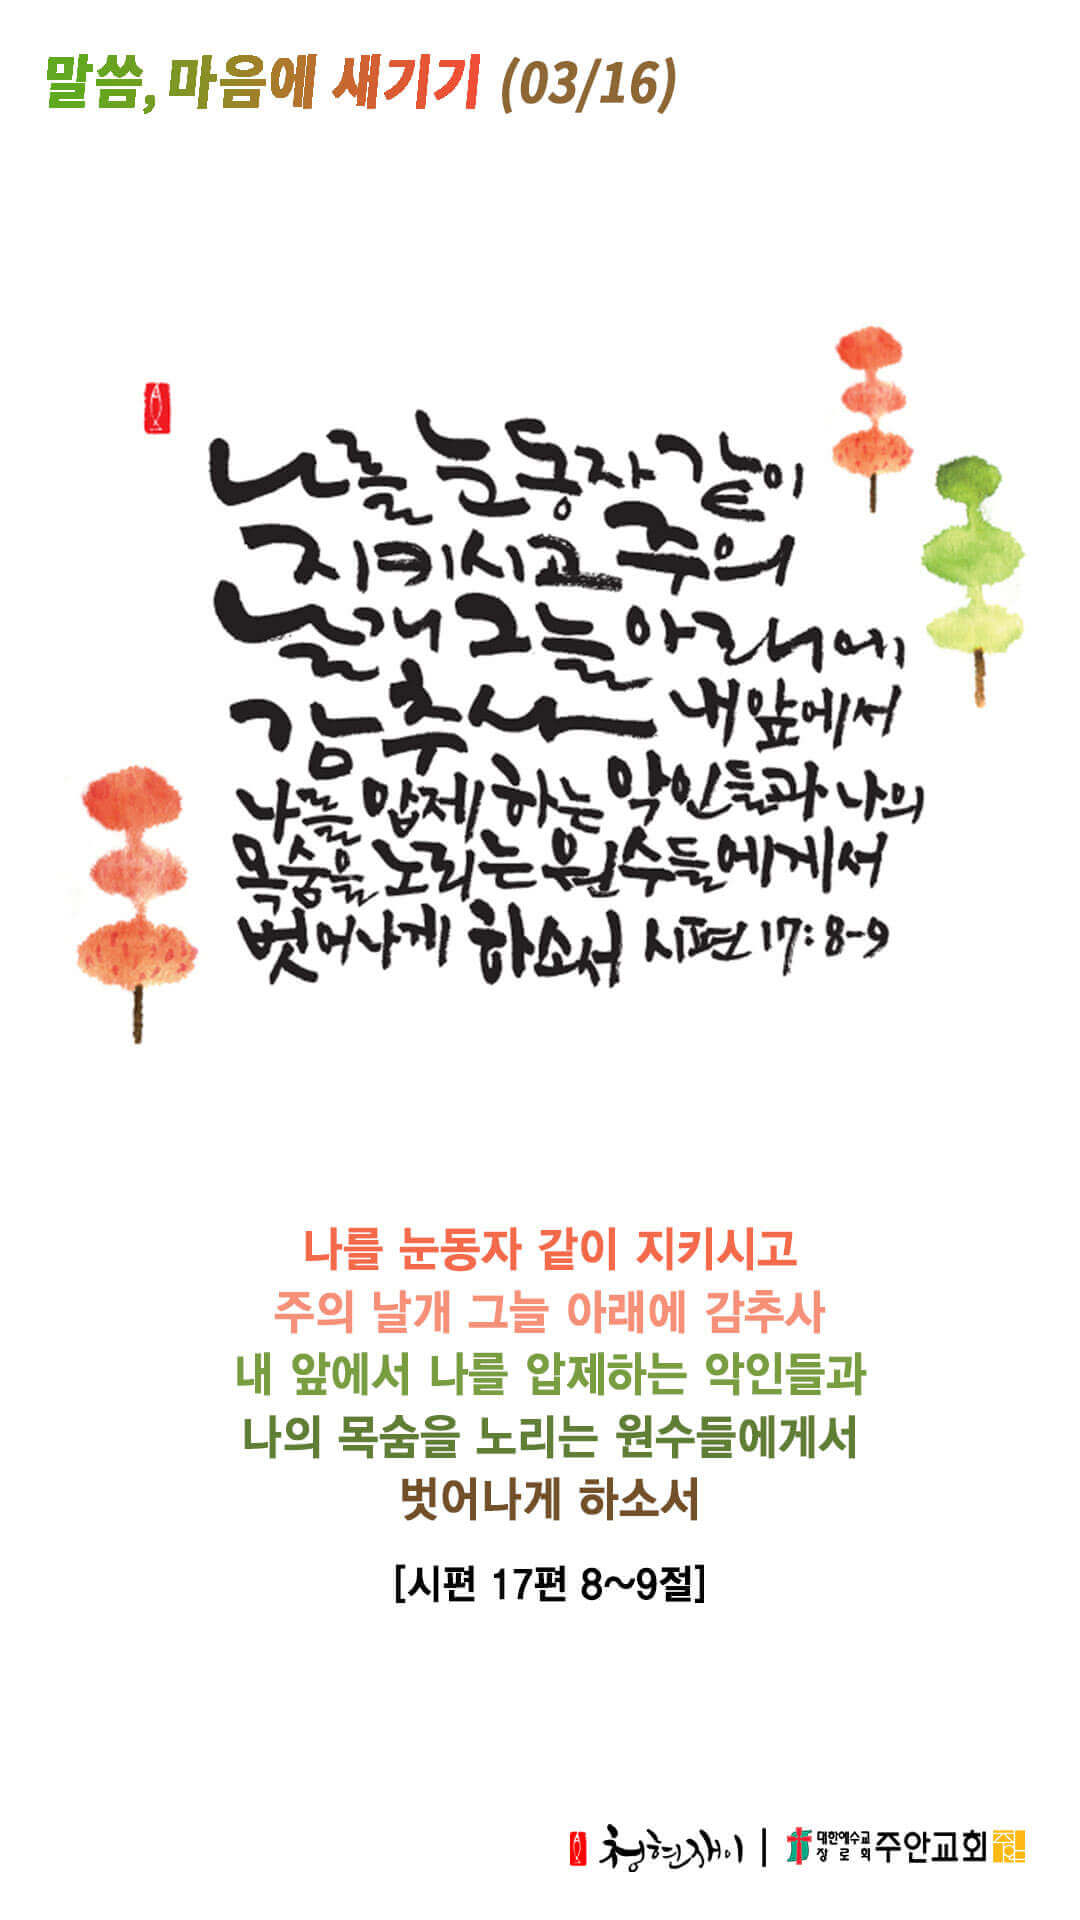 말씀, 마음에 새기기 (03/16)
나를 눈동자 같이
지키시고 주의
날개 그늘 아래에
감추사 내 앞에서
나를 압제하는 악인들과 나의
목숨을 노리는 원수들에게서
벗어나게 하소서 시편 17:8-9
나를 눈동자 같이 지키시고
주의 날개 그늘 아래에 감추사
내 앞에서 나를 압제하는 악인들과
나의 목숨을 노리는 원수들에게서
벗어나게 하소서
[시편 17편 8~9절]
청현재이 | 대한예수교장로회 주안교회